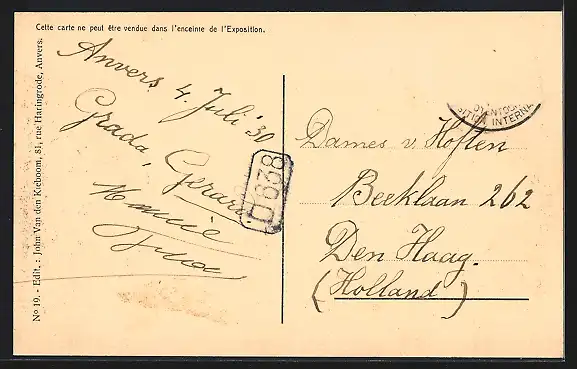 Cette carte ne peut être vendue dans l'enceinte de l'Exposition.
No 19. - Edit. : John Van den Kieboom, 81, rue Haringrode, Anvers.
Anvers 4 Juli '30
Grada, Gerard
Mannie
D 662 8
SITION INTERNA
Dames v. Hoften
Beeklaan 262
Den Haag.
(Holland)